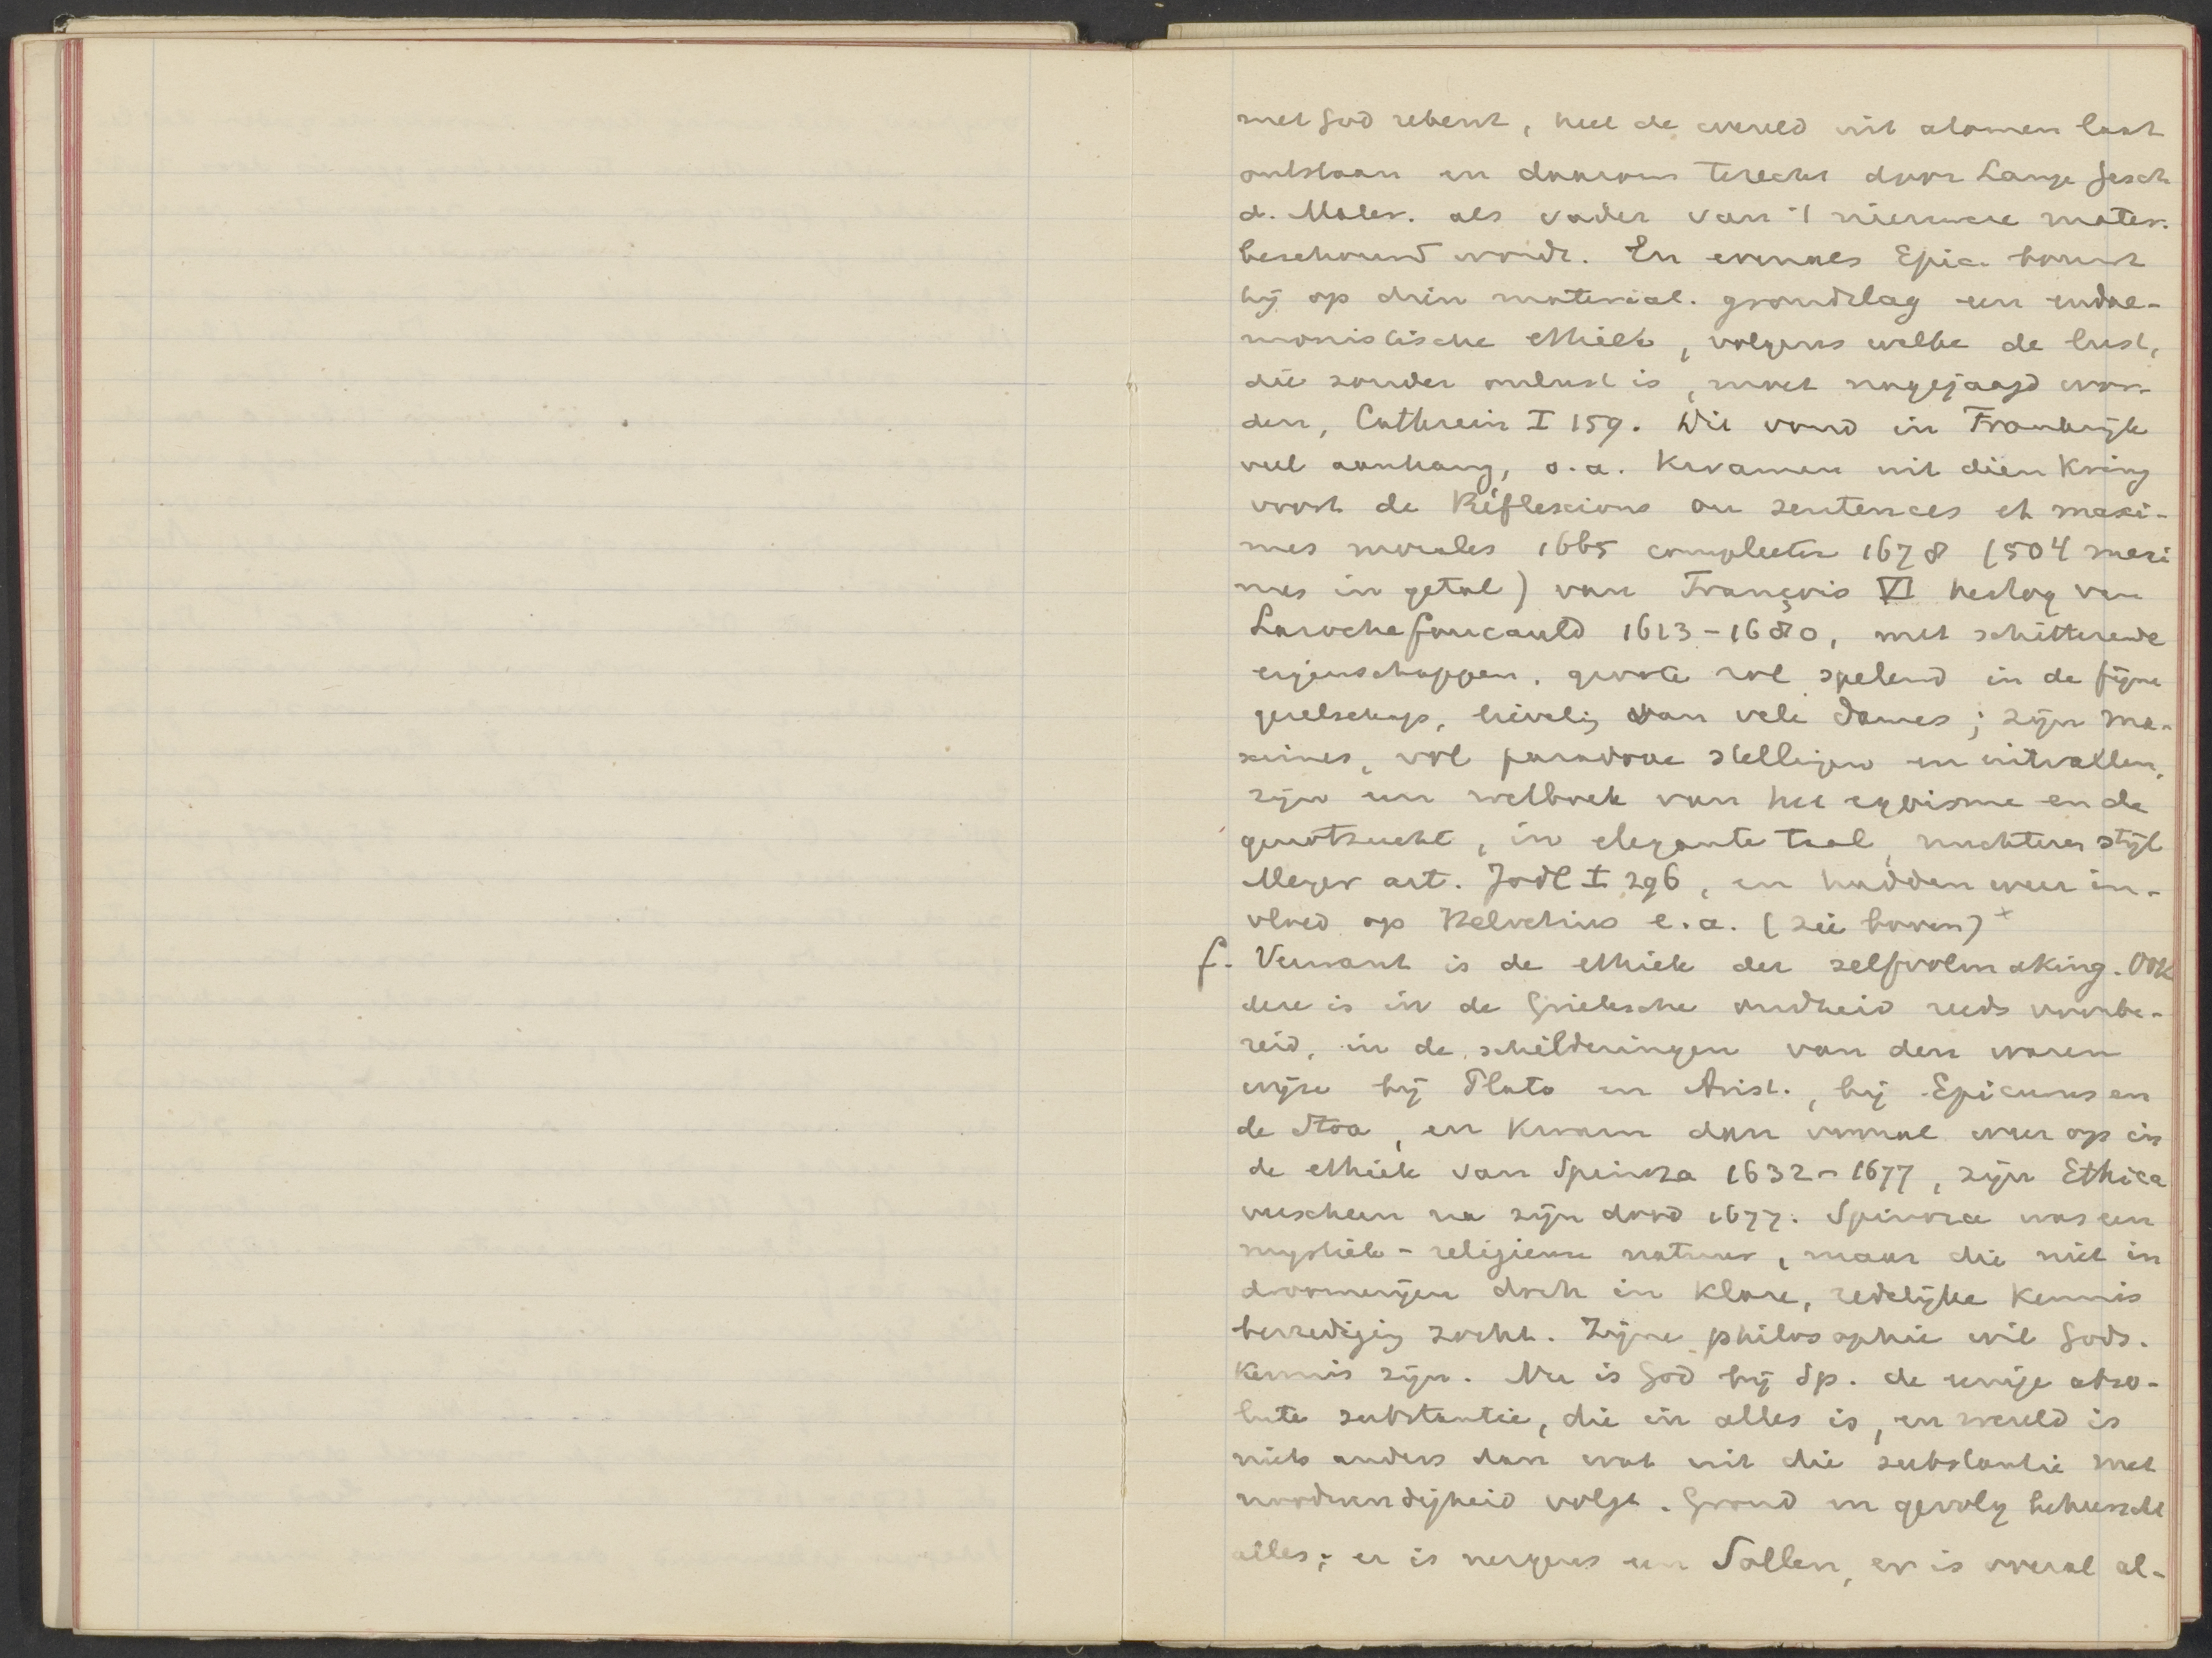 met God rekent, heel de wereld uit atomen laat
ontstaan en daarom terecht door Lange Gesch
d. Mater. als vader van 't nieuwere mater.
beschouwd wordt. En evenals Epic. bouwt
hij op dien material. grondslag een eudae-
monistische ethiek, volgens welke de lust,
die zonder onlust is, moet nagejaagd wor-
den, Cathrein I 159. Dit vond in Frankrijk
veel aanhang, o.a. kwamen uit dien kring
voort de Réflexions ou sentences et maxi-
mes morales 1665 compleeter 1678 (504 maxi
mes in getal) van François VI hertog van
Larochefoucauld 1613-1680, met schitterende
eigenschappen, groote rol spelend in de fijne
gezelschap, lieveling van vele dames; zijn ma-
ximes, vol paradoxe stellingen en uitvallen,
zijn een wetboek van het egoisme en de
genotzucht, in elegante taal, nuchteren stijl
Meyer art. Jodl I 296, en hadden weer in-
vloed op Helvetius e.a. (zie boven) +
f. Verwant is de ethiek der zelfvolmaking. Ook
deze is in de Grieksche oudheid reeds voorbe-
reid, in de schilderingen van den waren
wijze bij Plato en Arist., bij Epicurus en
de Stoa, en kwam dan vooral weer op in
de ethiek van Spinoza 1632-1677, zijn Ethica
verscheen na zijn dood 1677. Spinoza was een
mystiek-religieuse natuur, maar die niet in
droomerijen doch in klare, redelijke kennis
bevrediging zocht. Zijne philosophie wil Gods-
kennis zijn. Nu is God bij Sp. de eenige abso-
lute substantie, die in alles is, en wereld is
niets anders dan wat uit die substantie met
noodwendigheid volgt. Grond en gevolg beheerscht
alles; er is nergens een Sollen, er is overal al-